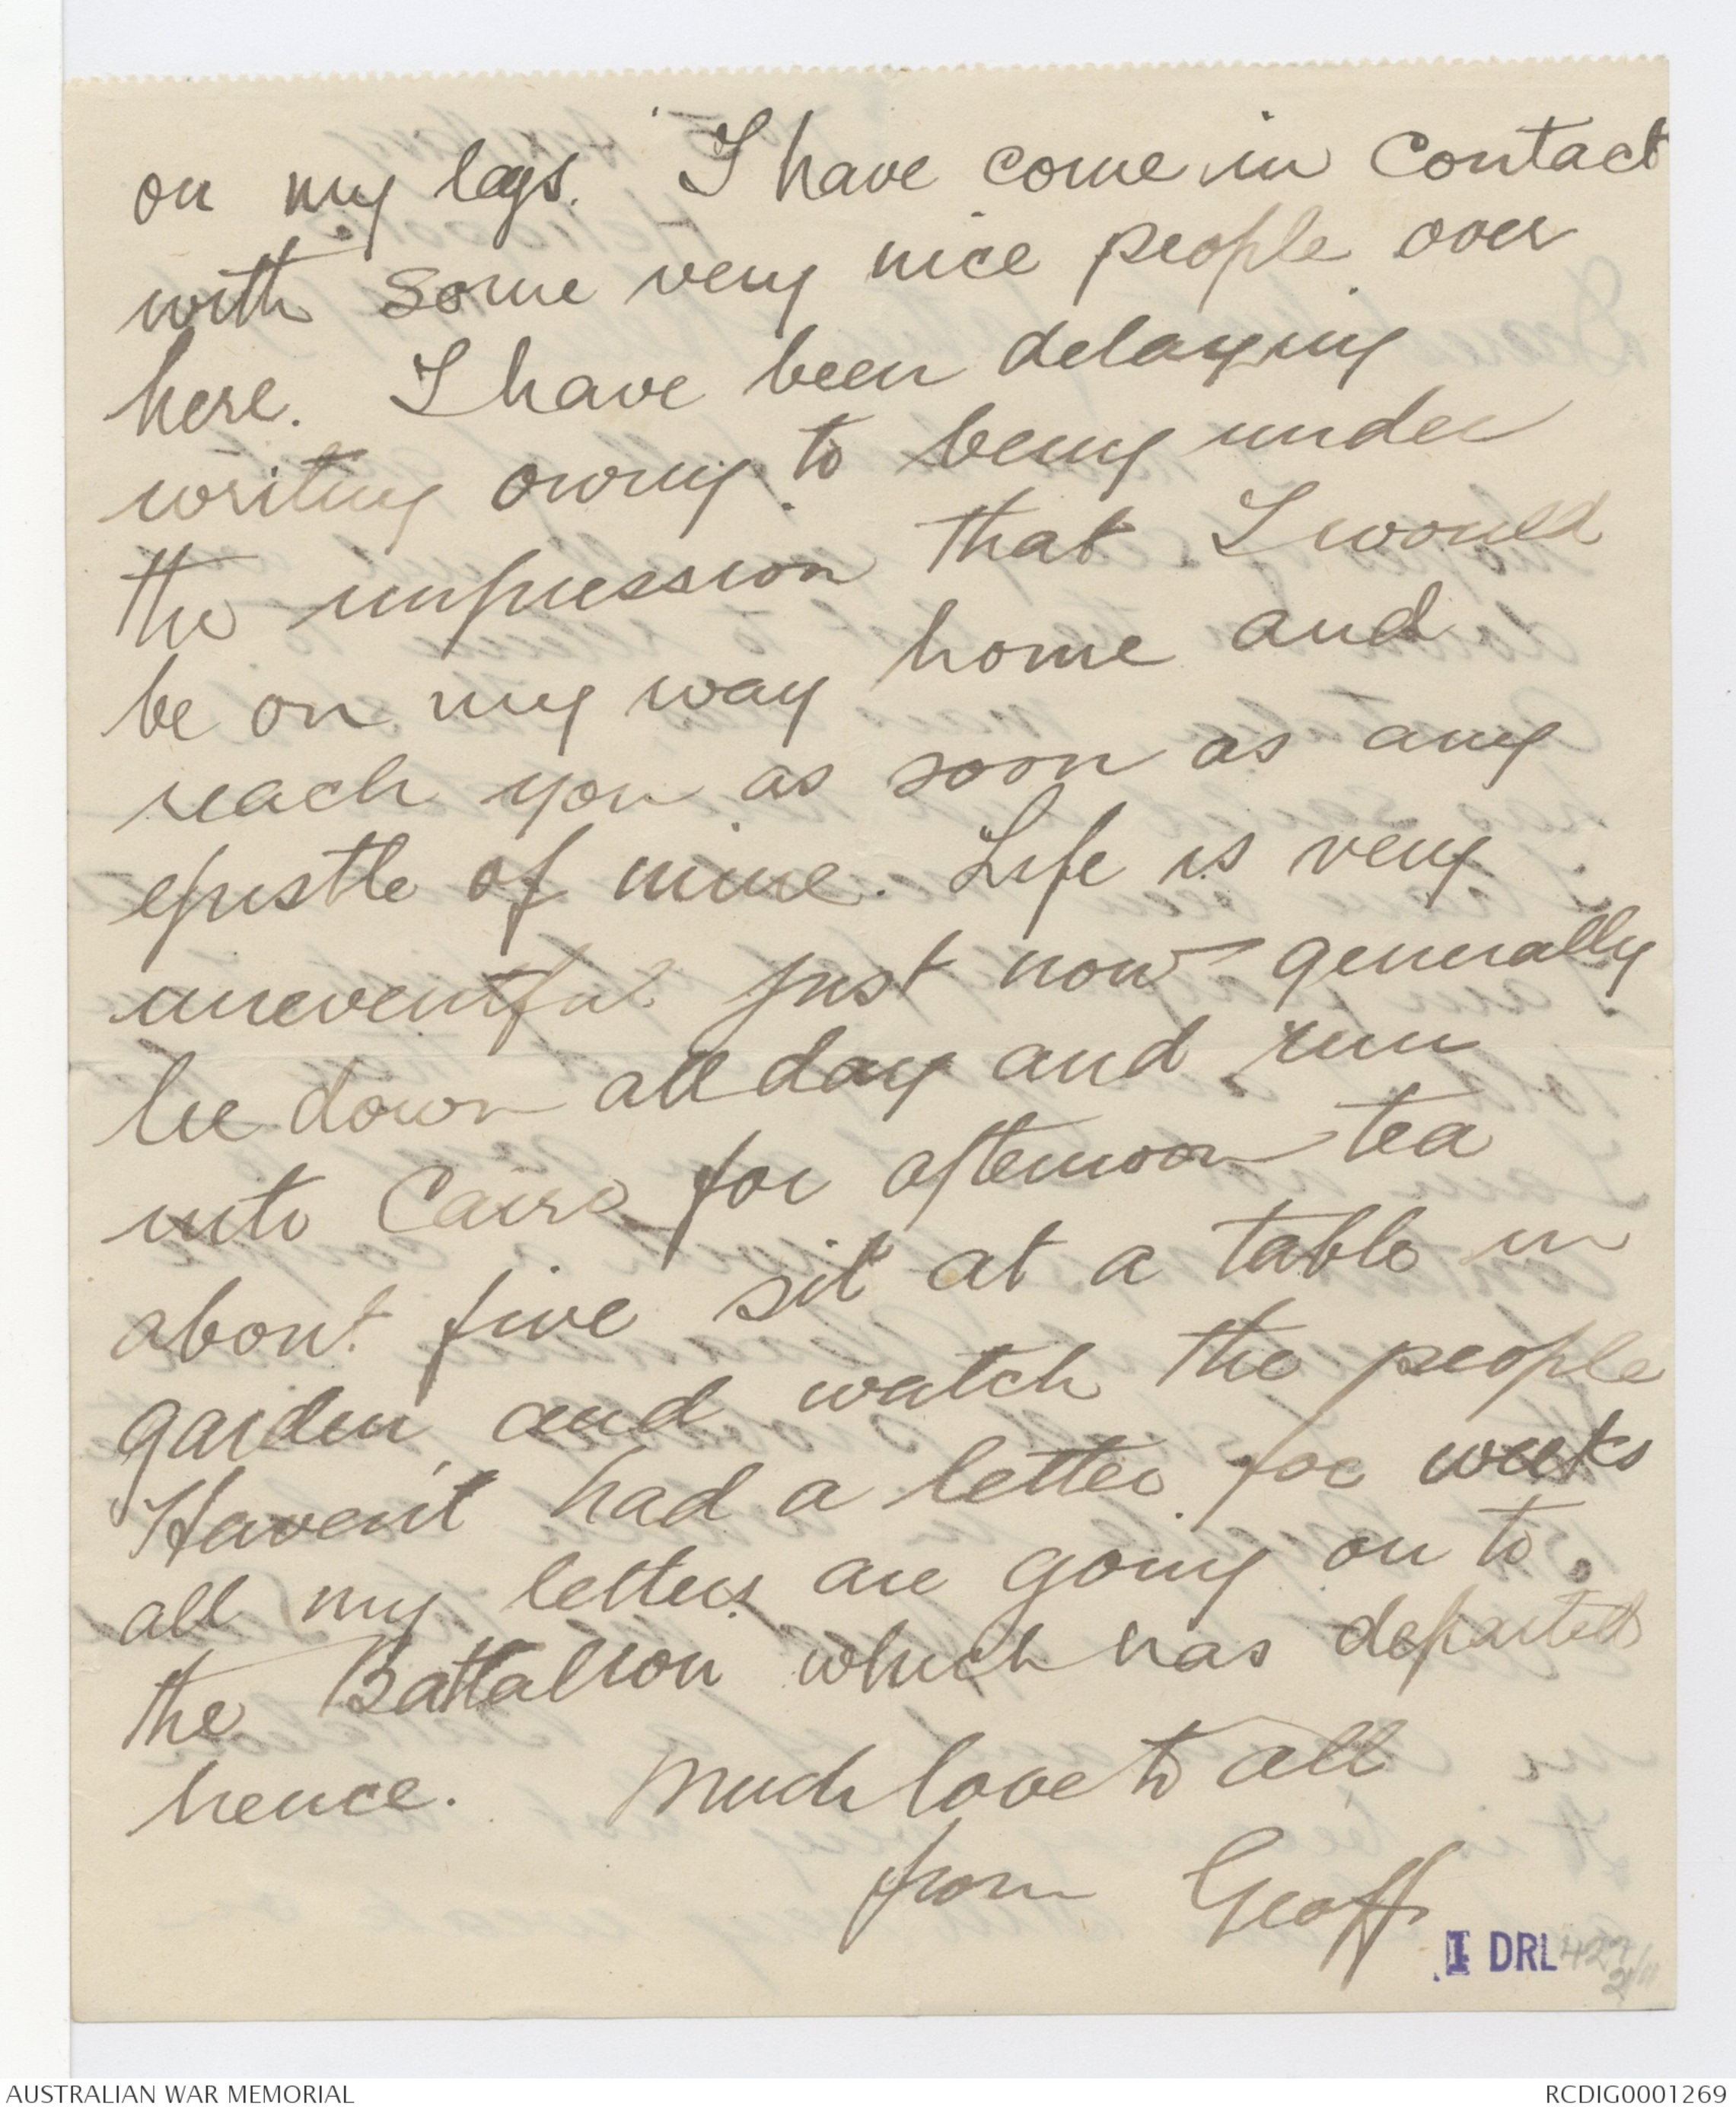 on my legs. I have come in contact
with some very nice people over
here. I have been delaying
writing owing to being under
the impression that I would
be on my way home and
reach you as soon as any
epistle of mine. Life is very
uneventful just now generally
lie down all day and run
into Cairo for afternoon tea
about five sit at a table in
garden and watch the people
Haven't had a letter for weeks
all my letters are going on to
the Battalion which has departed
hence. Much love to all
from Geoff
I DRL 427
AUSTRALIAN WAR MEMORIAL
RCDIG0001269